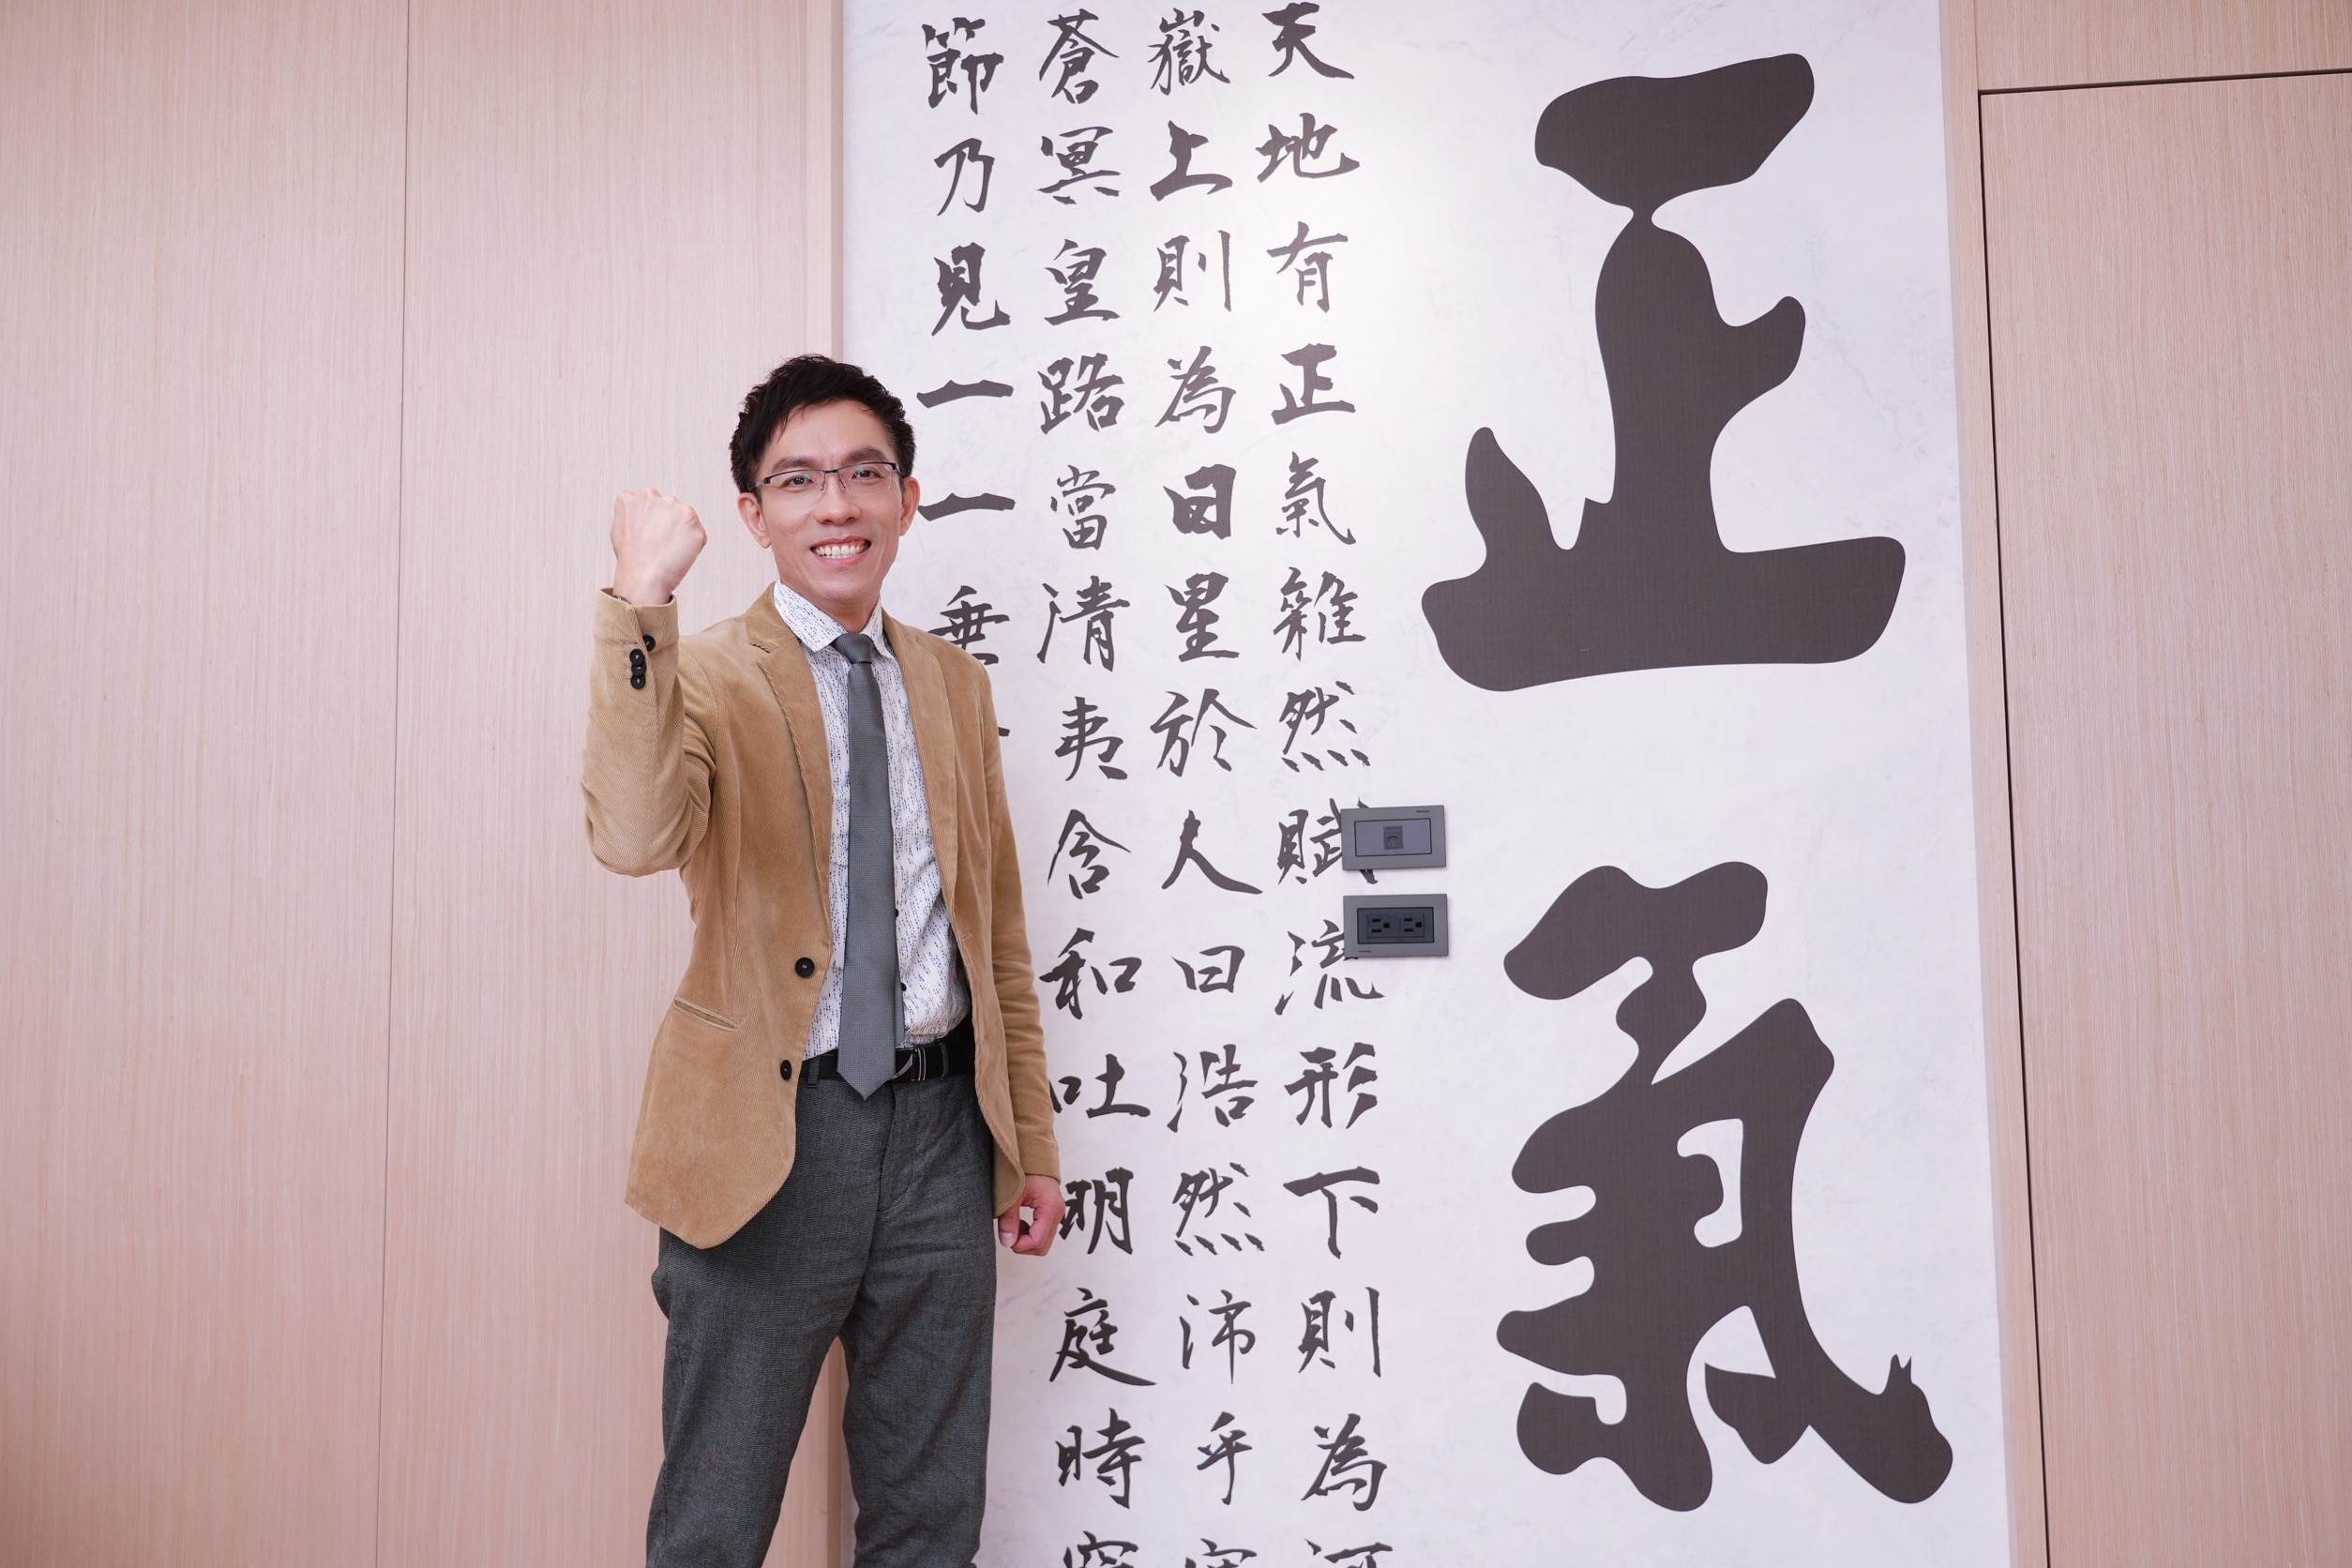 正氣
天地有正氣雜然賦流形下則為河
嶽上則為日星於人曰浩然沛乎塞
蒼冥皇路當清夷含和吐明庭時窮
節乃見一一垂